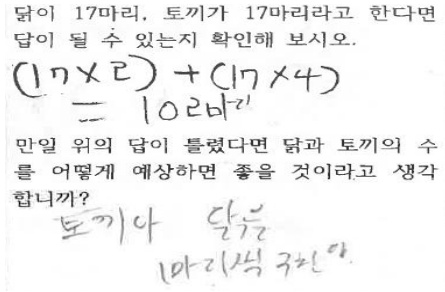 닭이 17마리, 토끼가 17마리라고 한다면
답이 될 수 있는지 확인해 보시오.
(17×2) + (17×4)
= 102마리
만일 위의 답이 틀렸다면 닭과 토끼의 수
를 어떻게 예상하면 좋을 것이라고 생각
합니까?
토끼나
1마리씩